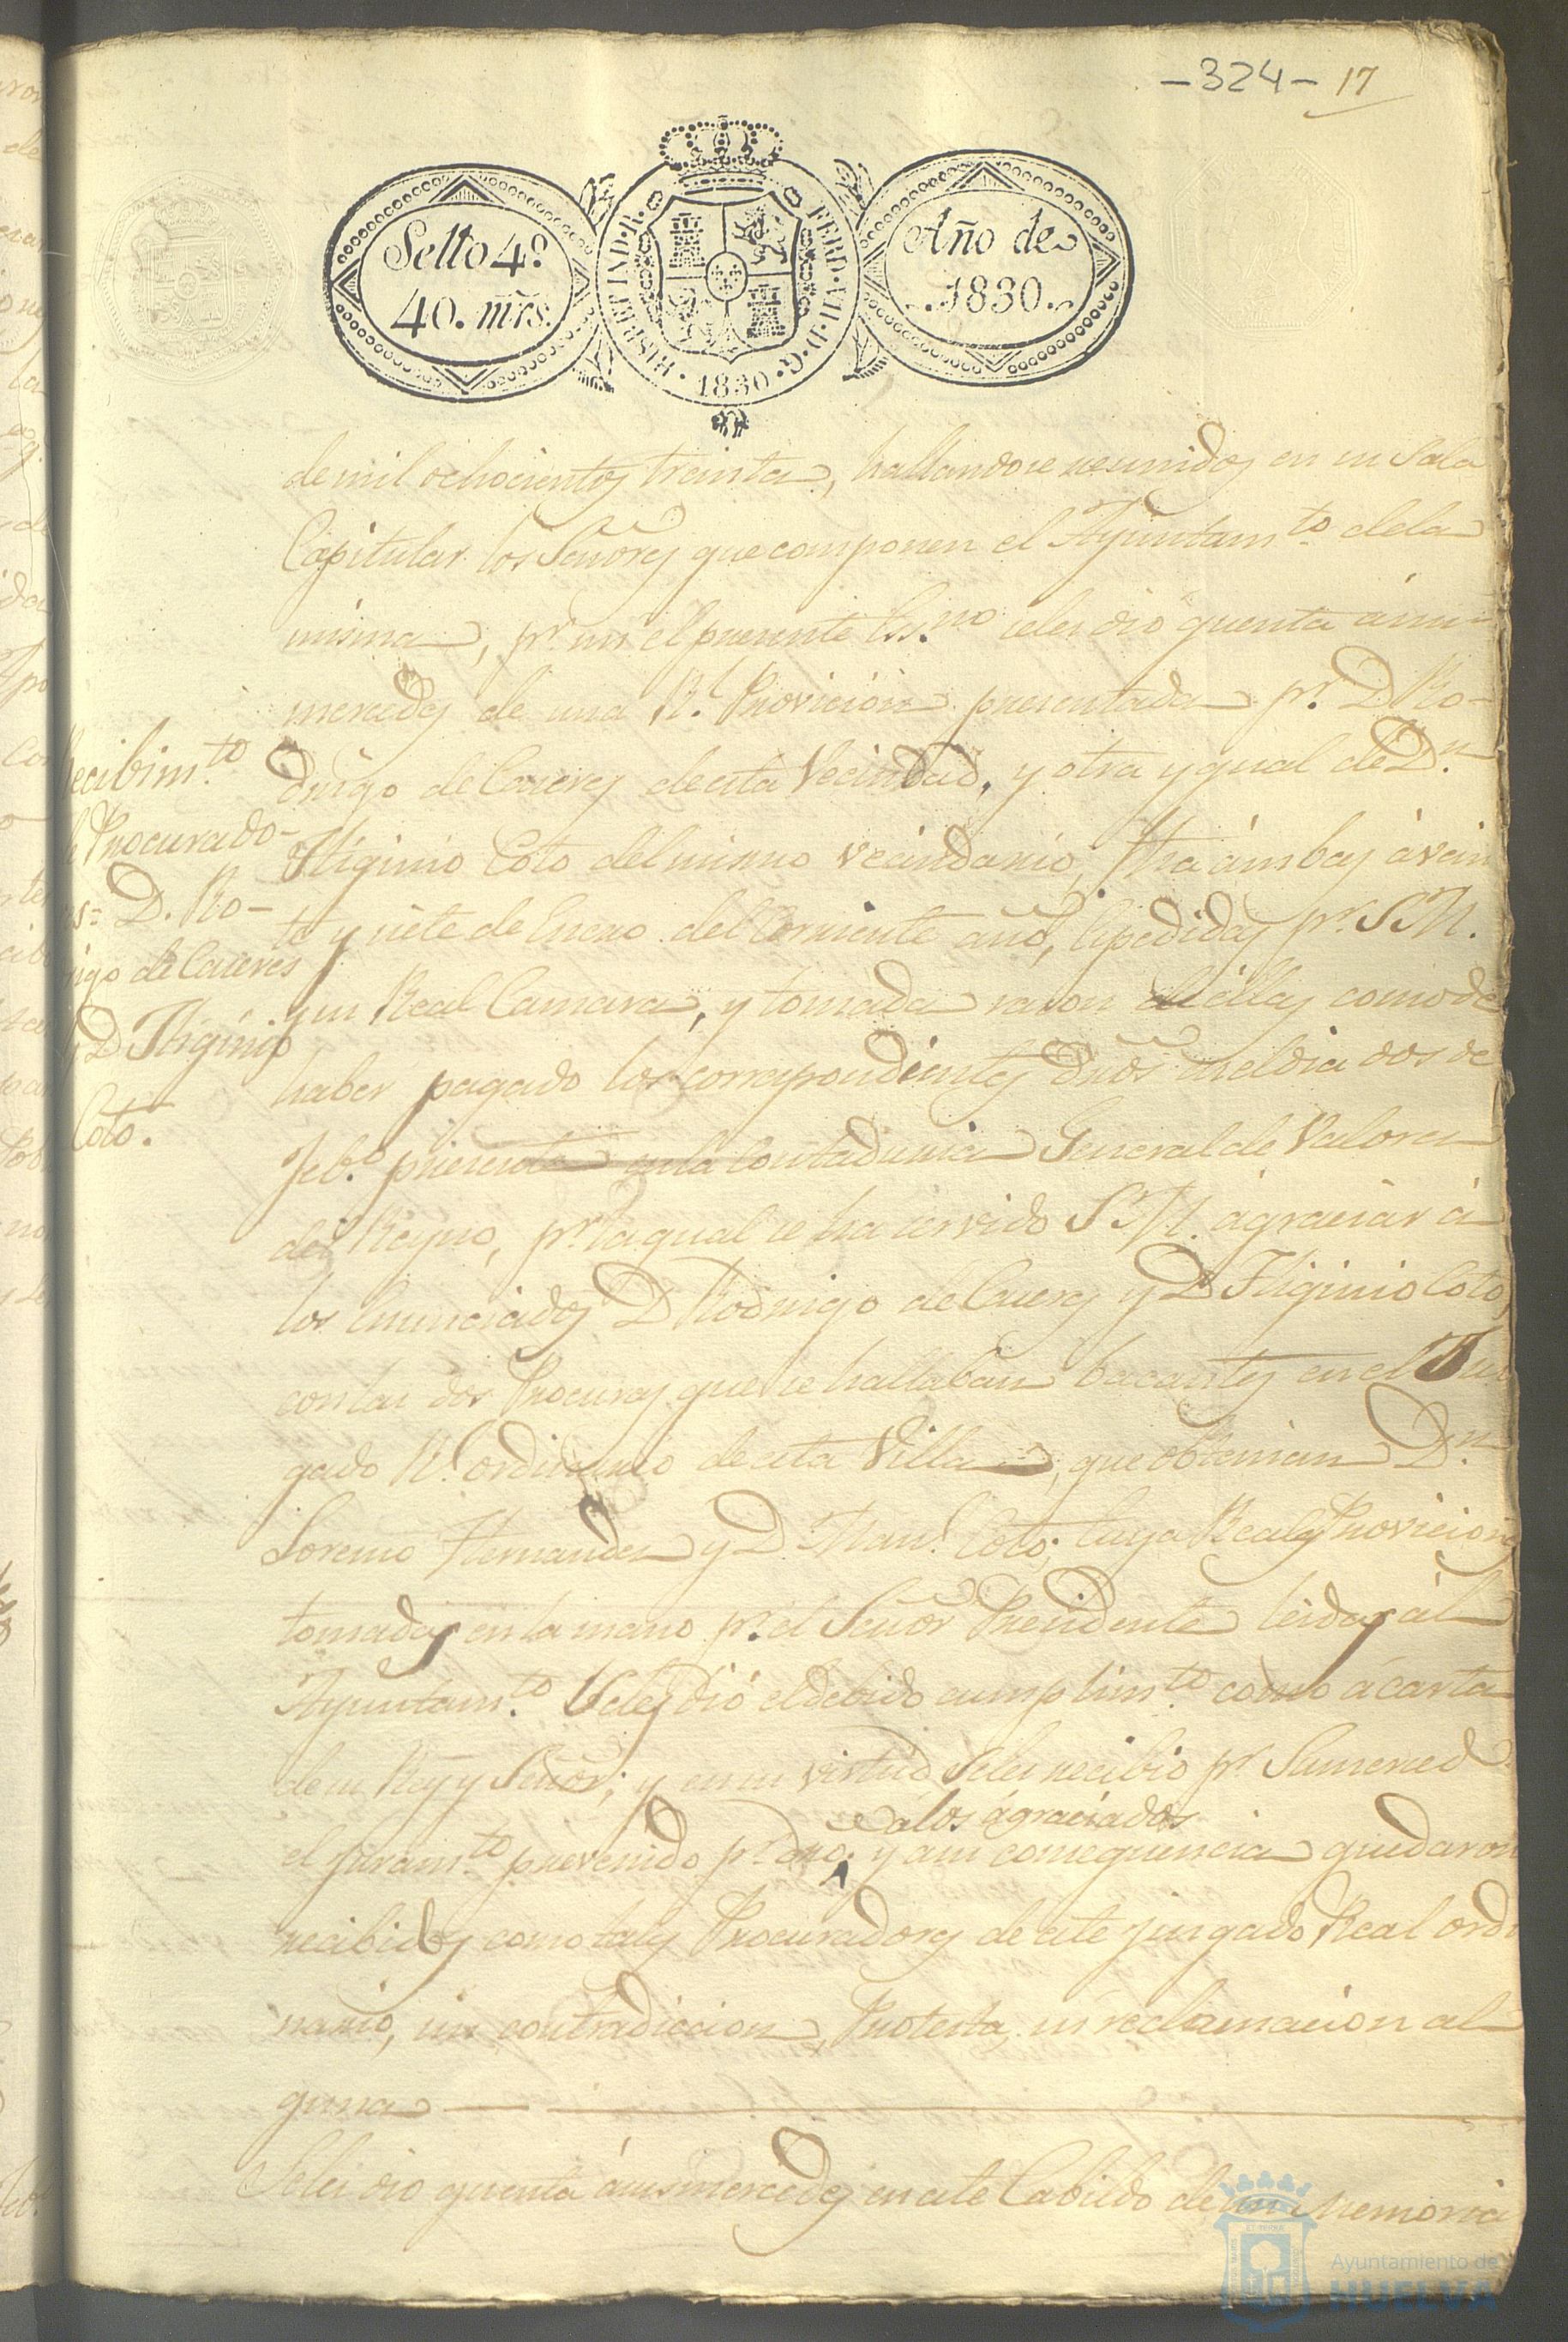 -324- 17
Sello 4.º
40. mrs.
HISP. ET IND. R. FERD. VII. D. G. 1830.
Año de
1830.
de mil ochocientos treinta, hallandose reunidos en su Sala
Capitular los Señores que componen el Ayuntam.to dela
misma, pr. mi el presente Ess.no seles dió quenta á sus
mercedes de una Rl. Provicion presentada pr. D Ro-
drigo de Caseres deesta Vecindad, y otra ygual de Dn.
Higinio Coto del mismo vecindario, fha ámbas á vein
te y siete de Enero del Corriente año, Espedidas pr. S M.
y su Real Camara, y tomada rason de éllas como de
haber pagado los correspondientes Dros. en el dia dos de
Feb.o presente en la Contaduria General de Valores
del Reyno, pr. la qual se ha servido S M. ágraciár á
los Enunciados D Rodrigo de Caseres y D Higinio Coto,
con las dos Procuras que se hallaban bacantes en el Juz
gado Rl. ordinario de esta Villa, que obtenian Dn.
Lorenso Hernandes y D Man.l Coto; Cuyas Reales Provicions
tomadas en la mano pr. el Señor Presidente leidas ál
Ayuntam.to Seles dió el debido cumplim.to como á carta
de su Rey y Señor; y en su virtud, Seles recibio pr. Sumerced
á los ágraciados
el Juram.to prevenido pr. dro. y asu consequencia quedaron
recibidos como tales Procuradores de este Jusgado Real ordi
nario, sin contradiccion, Protesta, ni reclamacion al
guna
Seles dio quenta ásusmercedes en este Cabildo de un Memoria
Recibim.to
de Procurado-
res= D. Ro-
drigo de Caseres
y D Higinio
Coto.
Ayuntamiento de
HUELVA